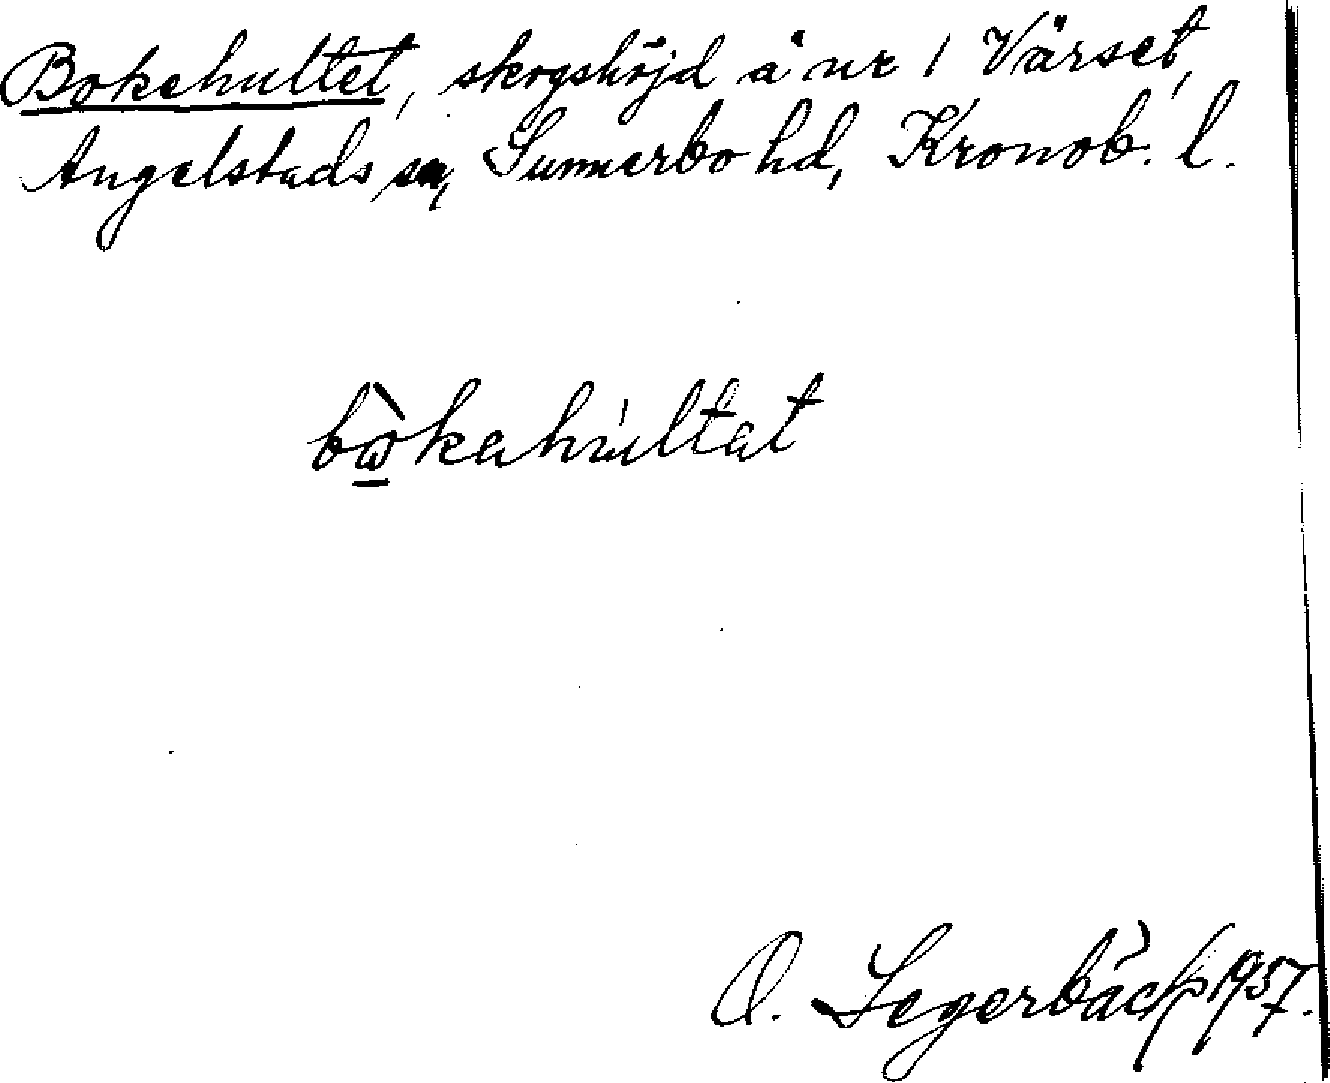 Bokehultet, skogshöjd å nr 1 Värset,
Angelstads sn, Sunnerbo hd, Kronob. l.
bὼ̲kahúltat
O. Segerbäck 1957.